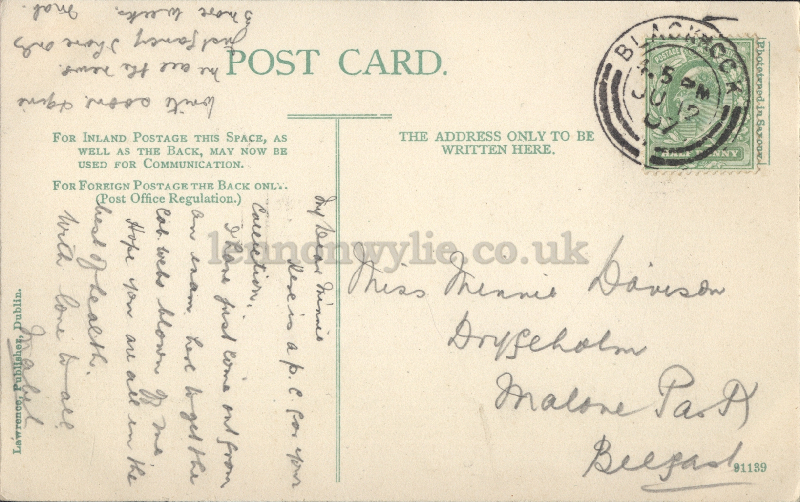 POST CARD.
FOR INLAND POSTAGE THIS SPACE, AS
WELL AS THE BACK, MAY NOW BE
USED FOR COMMUNICATION.
FOR FOREIGN POSTAGE THE BACK ONLY.
(Post Office Regulation.)
THE ADDRESS ONLY TO BE
WRITTEN HERE.
BLACKROCK
5 PM
JU 12
07
HALFPENNY
Phototyped in Saxony
Miss Minnie Davison
Drygeholm
Malone Park
Belfast
91139
My Dear Minnie
Here is a p.c. for your
Collection.
I have just come out from
an exam. have to get the
cob webs blown off me
Hope you are all in the
best of health.
With love to all
Mabel
write soon &
me all the news.
Just fancy I have only
3 more weeks.
Mab.
Lawrence, Publisher, Dublin.
lennonwylie.co.uk